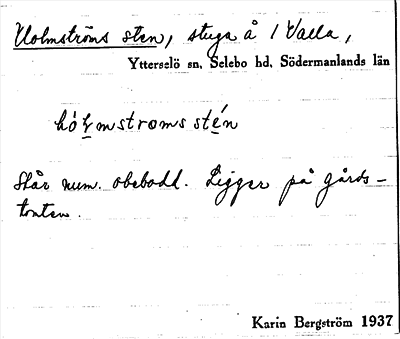 Holmströms sten, stuga å 1 Valla,
Ytterselö sn, Selebo hd, Södermanlands län
hólmstroms stén
Står num. obebodd. Ligger på gårds-
tomten.
Karin Bergström 1937